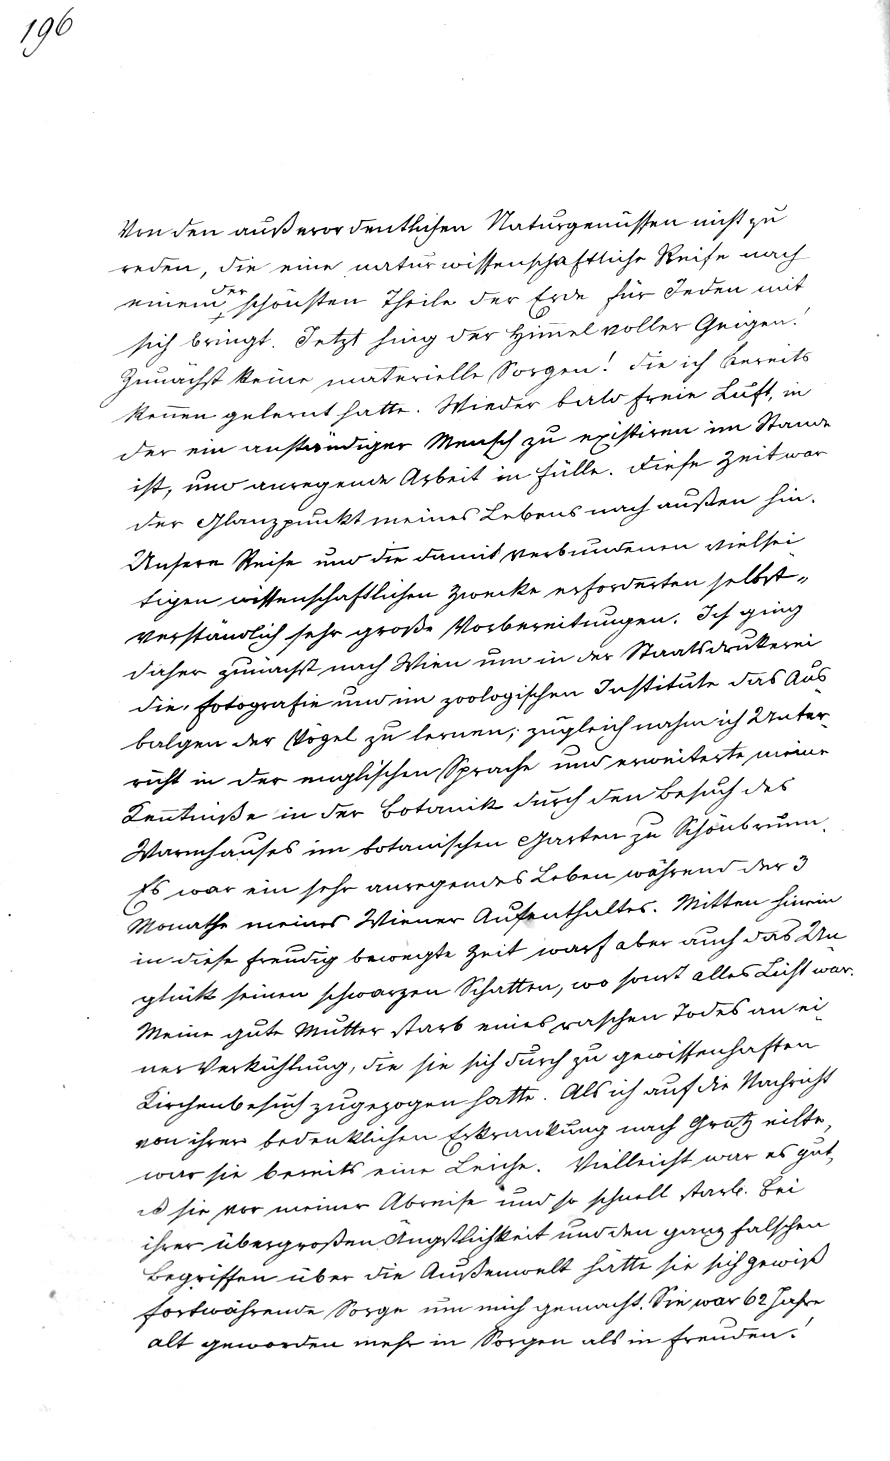 196
Von den außerordentlichen Naturgenüssen nicht zu
reden, die eine naturwissenschaftliche Reise nach
einem der schönsten Theile der Erde für Jeden mit
sich bringt. Jetzt hing der Him̅el voller Geigen!
Zunächst keine materielle Sorgen! die ich bereits
ken̅en gelernt hatte. Wieder bald freie Luft, in
der ein anständiger Mensch zu existiren im Stande
ist, und anregende Arbeit in Fülle. Diese Zeit war
der Glanzpunkt meines Lebens nach außen hin.
Unsere Reise und die damit verbundenen vielsei
tigen wissenschaftlichen Zwecke erforderten selbst-
verständlich sehr große Vorbereitungen. Ich ging
daher zunächst nach Wien um in der Staatsdrukerei
die Fotografie und im zoologischen Institute das Aus
balgen der Vögel zu lernen; zugleich nahm ich Unter-
richt in der englischen Sprache und erweiterte meine
Ken̅tniße in der Botanik durch den Besuch des
Warmhauses im botanischen Garten zu Schönbrunn.
Es war ein sehr anregendes Leben während der 3
Monathe meines Wiener Aufenthaltes. Mitten hinein
in diese freudig bewegte Zeit warf aber auch das Un
glük seinen schwarzen Schatten, wo sonst alles Licht war.
Meine gute Mutter starb eines raschen Todes an ei-
ner Verkühlung, die sie sich durch zu gewissenhaften
Kirchenbesuch zugezogen hatte. Als ich auf die Nachricht
von ihrer bedenklichen Erkrankung nach Gratz eilte,
war sie bereits eine Leiche. Vielleicht war es gut,
sie vor meiner Abreise und so schnell starb. Bei
ihrer übergroßen Ängstlichkeit und den ganz falschen
Begriffen über die Außenwelt hätte sie sich gewiß
fortwährende Sorge um mich gemacht. Sie war 62 Jahre
alt geworden mehr in Sorgen als in Freuden!